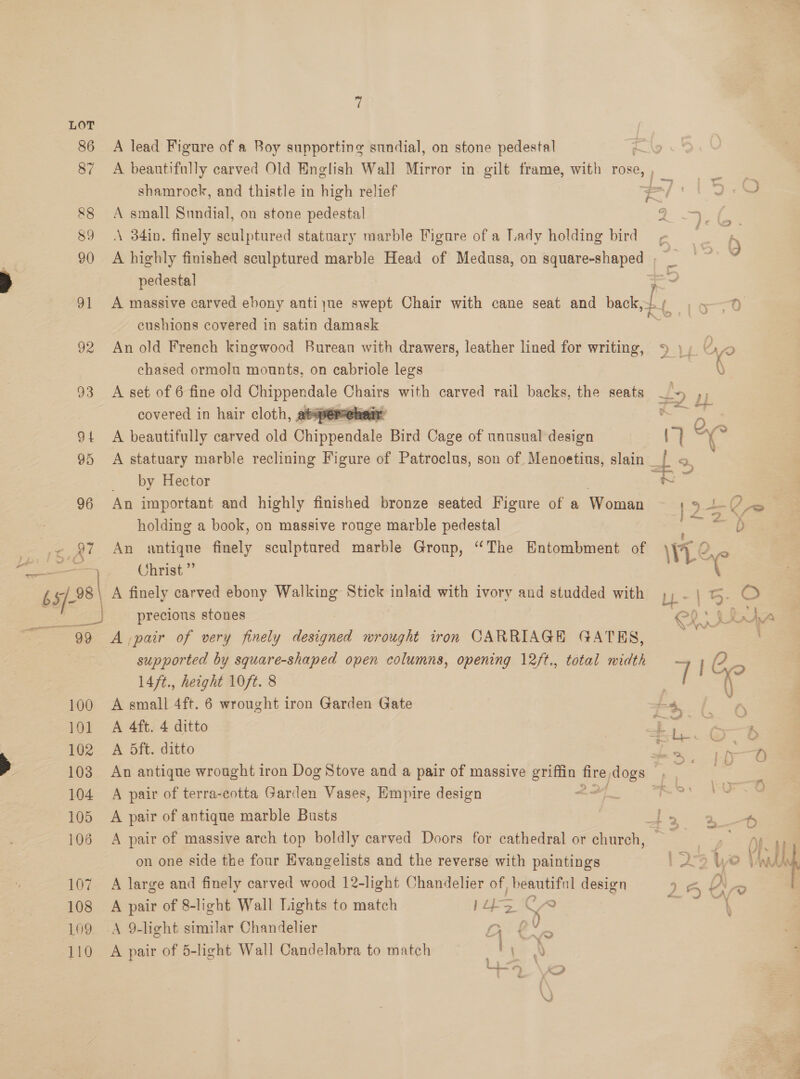 7
LOT
86 A lead Figure of a Boy supporting sundial, on stone pedestal
87 A beautifully carved Old English Wall Mirror in gilt frame, with rose,
shamrock, and thistle in high relief
88 A small Sundial, on stone pedestal
89 A 34in. finely sculptured statuary marble Figure of a Lady holding bird
90 A highly finished sculptured marble Head of Medusa, on square-shaped
pedestal
91 A massive carved ebony antique swept Chair with cane seat and back,
cushions covered in satin damask
92 An old French kingwood Bureau with drawers, leather lined for writing,
chased ormolu mounts, on cabriole legs
93 A set of 6 fine old Chippendale Chairs with carved rail backs, the seats
covered in hair cloth, at per chair
94 A beautifully carved old Chippendale Bird Cage of unusual design
95 A statuary marble reclining Figure of Patroclus, son of Menoetius, slain
by Hector
96 An important and highly finished bronze seated Figure of a Woman
holding a book, on massive rouge marble pedestal
97 An antique finely sculptured marble Group, “The Entombment of
Christ”
65/- 98 A finely carved ebony Walking Stick inlaid with ivory and studded with
precious stones
99 A pair of very finely designed wrought iron CARRIAGE GATES,
supported by square-shaped open columns, opening 12ft., total width
14ft., height 10ft. 8
100 A small 4ft. 6 wrought iron Garden Gate
101 A 4ft. 4 ditto
102 A 5ft. ditto
103 An antique wrought iron Dog Stove and a pair of massive griffin fire dogs
104 A pair of terra-cotta Garden Vases, Empire design
105 A pair of antique marble Busts
106 A pair of massive arch top boldly carved Doors for cathedral or church,
on one side the four Evangelists and the reverse with paintings
107 A large and finely carved wood 12-light Chandelier of beautiful design
108 A pair of 8-light Wall Lights to match
109 A 9-light similar Chandelier
110 A pair of 5-light Wall Candelabra to match